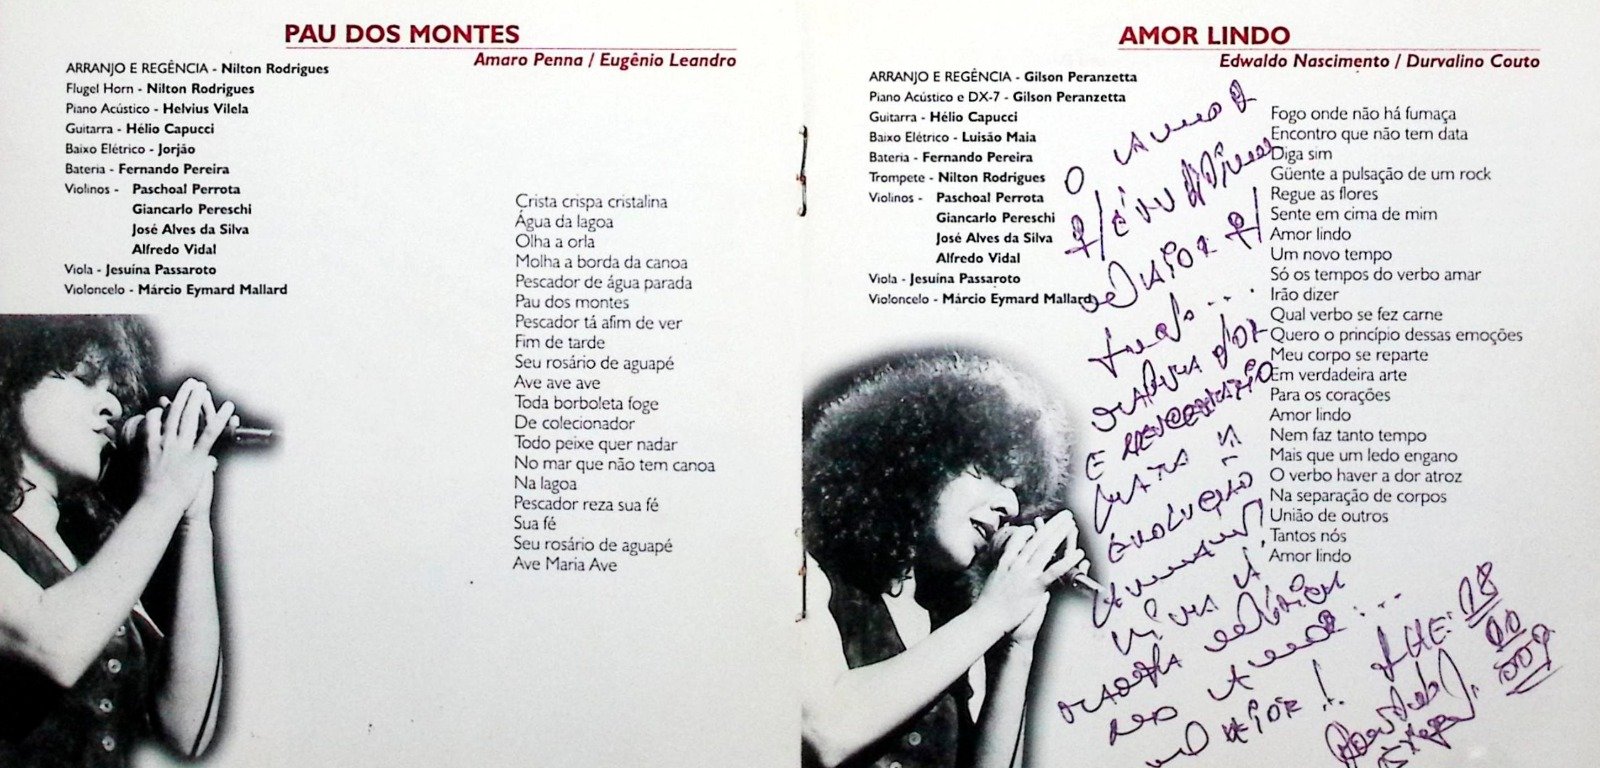 PAU DOS MONTES
Amaro Penna / Eugênio Leandro
ARRANJO E REGÊNCIA - Nilton Rodrigues
Flugel Horn - Nilton Rodrigues
Piano Acústico - Helvius Vilela
Guitarra - Hélio Capucci
Baixo Elétrico - Jorjão
Bateria - Fernando Pereira
Violinos - Paschoal Perrota
Giancarlo Pereschi
José Alves da Silva
Alfredo Vidal
Viola - Jesuína Passaroto
Violoncelo - Márcio Eymard Mallard
Crista crispa cristalina
Água da lagoa
Olha a orla
Molha a borda da canoa
Pescador de água parada
Pau dos montes
Pescador tá afim de ver
Fim de tarde
Seu rosário de aguapé
Ave ave ave
Toda borboleta foge
De colecionador
Todo peixe quer nadar
No mar que não tem canoa
Na lagoa
Pescador reza sua fé
Sua fé
Seu rosário de aguapé
Ave Maria Ave
AMOR LINDO
Edwaldo Nascimento / Durvalino Couto
ARRANJO E REGÊNCIA - Gilson Peranzetta
Piano Acústico e DX-7 - Gilson Peranzetta
Guitarra - Hélio Capucci
Baixo Elétrico - Luisão Maia
Bateria - Fernando Pereira
Trompete - Nilton Rodrigues
Violinos - Paschoal Perrota
Giancarlo Pereschi
José Alves da Silva
Alfredo Vidal
Viola - Jesuína Passaroto
Violoncelo - Márcio Eymard Mallard
Fogo onde não há fumaça
Encontro que não tem data
Diga sim
Güente a pulsação de um rock
Regue as flores
Sente em cima de mim
Amor lindo
Um novo tempo
Só os tempos do verbo amar
Irão dizer
Qual verbo se fez carne
Quero o princípio dessas emoções
Meu corpo se reparte
Em verdadeira arte
Para os corações
Amor lindo
Nem faz tanto tempo
Mais que um ledo engano
O verbo haver a dor atroz
Na separação de corpos
União de outros
Tantos nós
Amor lindo
O
E
EVOLUÇÃO
VIVA
18